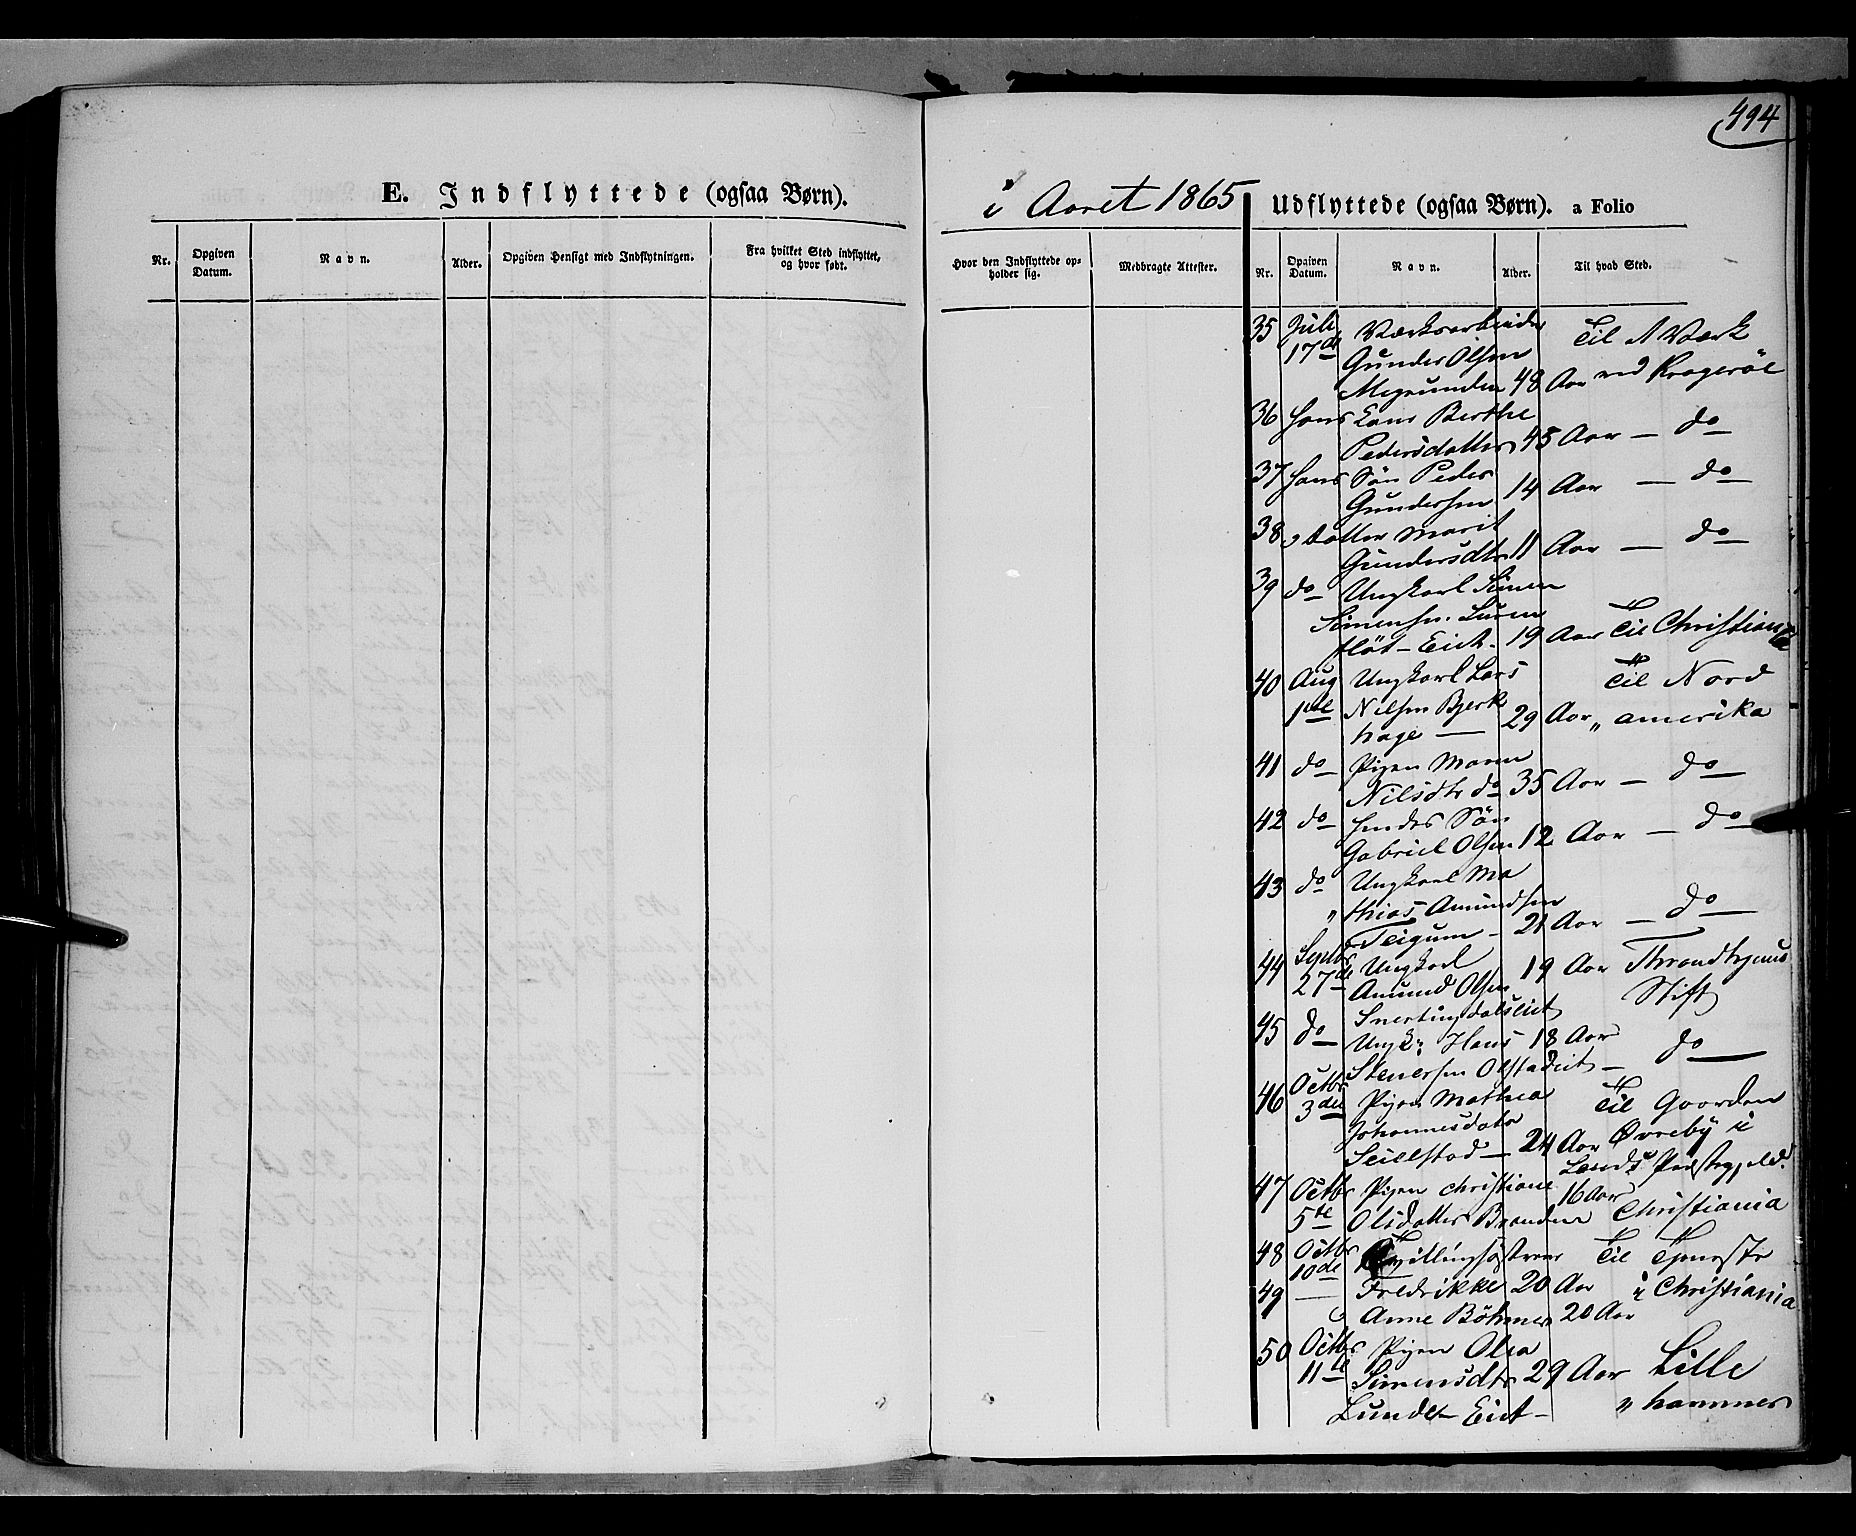 494
E. Indflyttede (ogsaa Børn).
i Aaret 1865
Udflyttede (ogsaa Børn). a Folio
Nr. Opgiven Datum. Navn. Alder. Opgiven Hensigt med Indflytningen. Fra hvilket Sted indflyttet, og hvor født.
Hvor den Indflyttede opholder sig. Medbragte Attester. Nr. Opgiven Datum. Navn. Alder. Til hvad Sted.
35 Juli Værksarbeider Til N Værk
17de Gunder Olsen
48 Aar ved Kragerøe
36 Hans Kone Berthe
Pedersdatter 45 Aar — do
37 Hans Søn Peder
Gundersen 14 Aar — do
38 Datter Marit
Gundersdtr 11 Aar — do
39 do Ungkarl Simen
Simensen
Eiet - 19 Aar Til Christiania
40 Aug Ungkarl Lars Til Nord
1ste Nilsen Bjerk
hage — 29 Aar " amerika
41 do Pigen Maren
Nilsdtr do 35 Aar — do
42 do Hendes Søn
Gabriel Olsen 12 Aar — do
43 do Ungkarl Ma
" thias Amundsen
Teigum - 21 Aar — do
44 Septbr Ungkarl 19 Aar Throndhjems
27de Amund Olsen Stift
Snertingdalseiet
45 do Ungk: Hans 18 Aar
Stenersen Olstadeiet — do
46 Octbr Pigen Mathea Til Gaarden
3die Johannesdatr
Seielstad — 24 Aar Øvreby i
Lands Præstegjeld.
47 Octbr Pigen Christiane 16 Aar
5te Olsdatter Branden Christiania
48 Octbr Tvillingsøstrene Til Tjeneste
10de
49 — Fredrikke 20 Aar i Christiania
Anne Böhmer 20 Aar
50 Octbr Pigen Olea
11te Simensdtr 29 Aar Lille
Eiet - " hammer